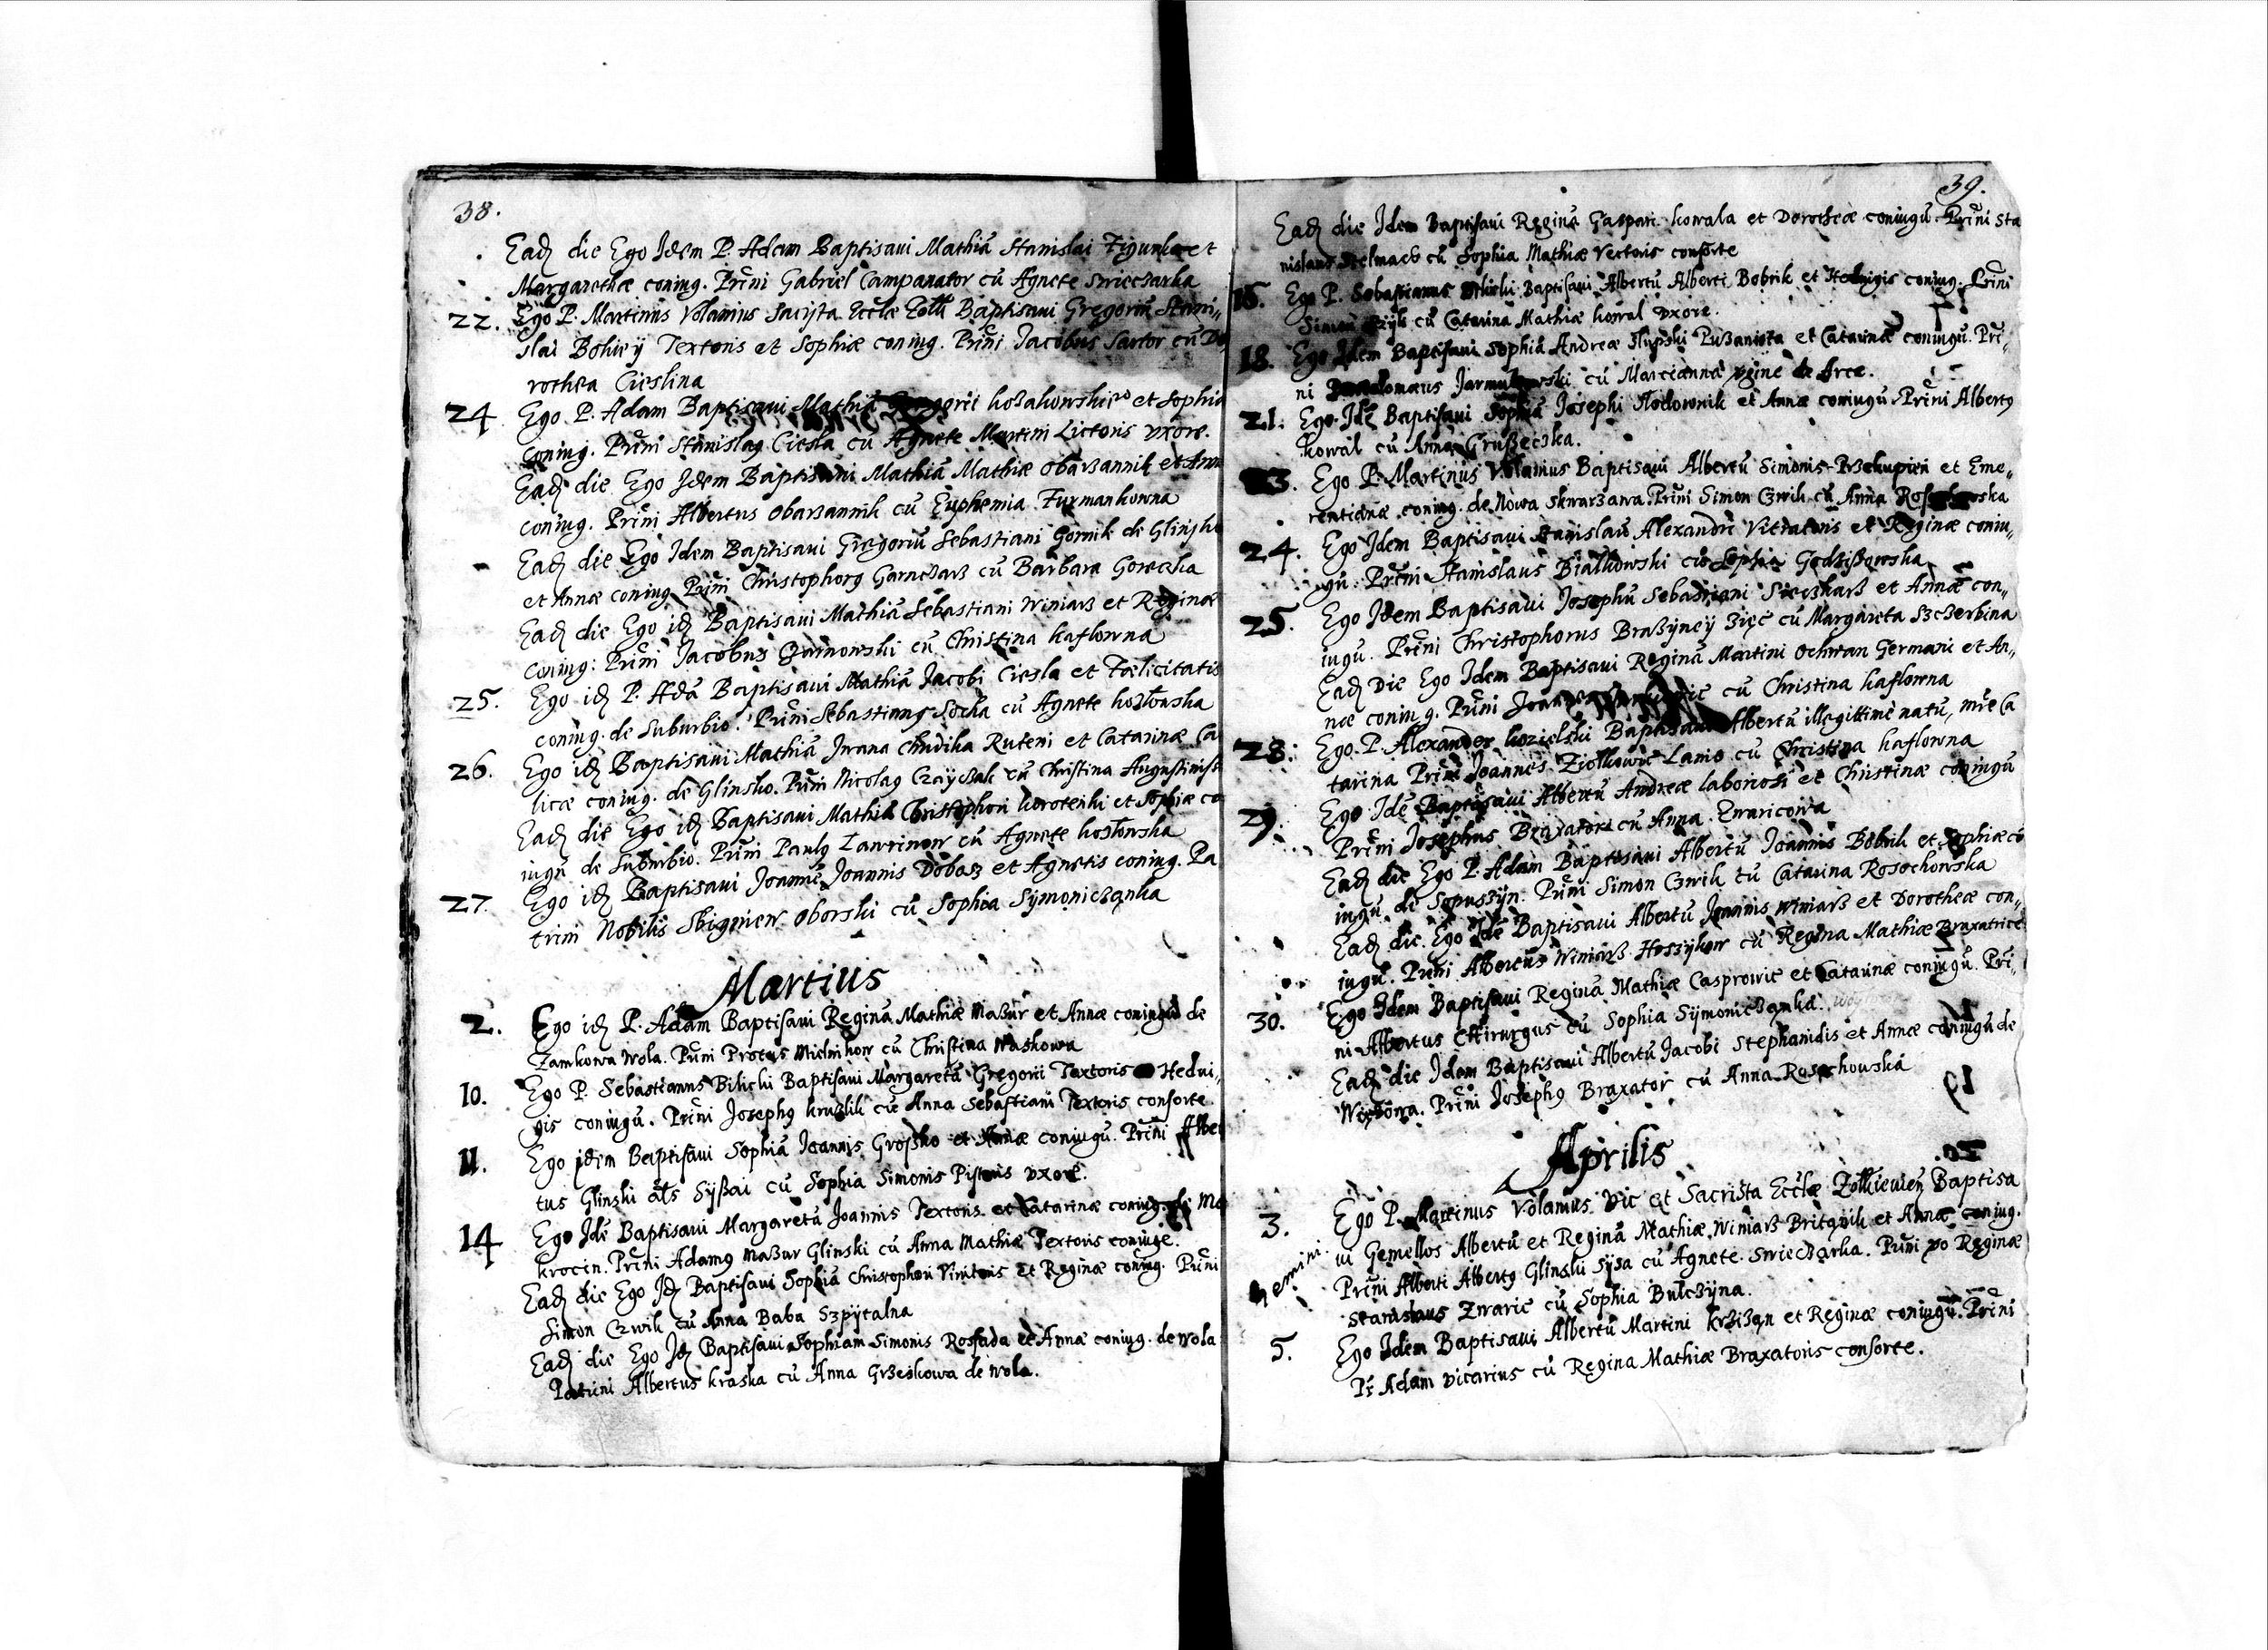 38.
Ead die Ego Idem P. Adam Baptisaui Mathiã Stanislai Figunka et
Margarethæ coniug. Prini Gabriel Campanator cũ Agnete Swieczarka
22. Ego P. Martinus Volamus Eccle Zoll Baptisaui Gregoriũ Stani„
slai Textoris et Sophiæ coniug. Prini Jacobus Sartor cũ Do
rothea Cieslina
24 Ego P. Adam Baptisaui Mathiã et Sophiæ
coniug. Prini Stanislaq Ciesla cũ Agnete Martini Lictoris vxore.
Ead die Ego Idem Baptisaui Mathiã Mathiæ obarzannik et Ann
coniug. Prini Albertus obarzannik cũ Euphemia Furmankowna
Ead die Ego Idem Baptisaui Gregoriũ Sebastiani Gornik de Glinsko
et Annæ coniug Prini Christophorq Garnczarz cũ Barbara Gorecka
Ead die Ego id Baptisaui Mathiã Sebastiani Winiarz et Reginæ
coniug: Prini Jacobus cũ Christina kaflowna
25. Ego id P. Adã Baptisaui Mathiã Jacobi Ciesla et Fælicitatis
coniug. de Suburbio. Prini Sebastianq Socha cũ Agnete
26. Ego id Baptisaui Mathiã Iwana Chudika Ruteni et Catarinæ Ca
licæ coniug. de Glinsko. Prini Nicolaq cũ Christina
Ead die Ego id Baptisaui Mathiã Christophori korotenki et Sophiæ co
iugũ de Suburbio. Prini Paulq Lawrinow cũ Agnete
27. Ego id Baptisaui Joannẽ Joannis Dobosz et Agnetis coniug. Pa
trini Nobilis Sbigniew Oborski cũ Sophia Symoniczanka
Martius
2. Ego id P. Adam Baptisaui Reginã Mathiæ Mazur et Annæ coniugũ de
Zamkowa Wola. Prini Protus Mielnikow cũ Christina Waskowa
10. Ego P. Sebastianus Bilicki Baptisaui Margaretã Gregorii Textoris Hedui„
gis coniugũ. Prini Josephq kruzlik cũ Anna Sebastiani Textoris consorte.
11. Ego idem Baptisaui Sophiã Joannis Grosko et Annæ coniugũ. Prini Alber
tus Glinski als Syßai cũ Sophia Simonis Pistoris vxore.
14 Ego Idẽ Baptisaui Margaretã Joannis Textoris et Catarinæ coniug. de Mo
krocin. Prini Adamq Mazur Glinski cũ Anna Mathiæ Textoris coniuge.
Ead die Ego Id Baptisaui Sophiã Christophori et Reginæ coniug. Prini
Simon Czwik cũ Anna Baba Szpytalna
Ead die Ego Id Baptisaui Sophiam Simonis Rossada et Annæ coniug. de wola
Patrini Albertus kraska cũ Anna Grzeskowa de wola.
39.
Ead die Idem Baptisaui Reginã Gaspari kowala et Dorotheæ coniugũ. Prini Sta
nislaus Stelmach cũ Sophia Mathiæ Vectoris consorte
15. Ego P. Sebastianus Bilicki Baptisaui Albertũ Alberti Bobrik et Heduigis coniug. Prini
Simon cũ Catarina Mathiæ kowal vxore.
18. Ego Idem Baptisaui Sophiã Andreæ Slupski et Catarinæ coniugũ. Pri„
ni cũ Marcianna de Arce.
21. Ego Idẽ Baptisaui Sophiã Josephi Slodownik et Annæ coniugũ Prini Albertq
kowal cũ Anna Grußeczka.
23. Ego P. Martinus Volamus Baptisaui Albertũ Simonis Przekupien et Eme„
rentianæ coniug. de Nowa Skwarzawa. Prini Simon Czwik cũ Anna
24. Ego Idem Baptisaui Stanislaũ Alexandri Vitratoris et Reginæ coniu„
gũ. Prini Stanislaus Bialkowski cũ Sophia
25. Ego Idem Baptisaui Josephũ Sebastiani et Annæ con„
iugũ. Prini Christophorus zięc cũ Margareta Szczerbina
Ead Die Ego Idem Baptisaui Reginã Martini Germani et An„
næ coniug. Prini cũ Christina kaflowna
28. Ego P. Alexander kozielski Baptisaui Albertũ illegittimè natũ, mre Ca
tarina Prini Joannes Ziolkowic Lanio cũ Christina kaflowna
29. Ego Idẽ Baptisaui Albertũ Andreæ laboriosi et Christinæ coniugũ
Prini Josephus Braxator cũ Anna Zwaricowa
Ead die Ego P. Adam Baptisaui Albertũ Joannis Bobrik et Sophiæ cõ
iugũ de Soposzyn. Prini Simon Czwik cũ Catarina Rosochowska
Ead die Ego Idẽ Baptisaui Albertũ Joannis Winiarz et Dorotheæ con„
iugũ. Prini Albertus Winiarz Hoszykow cũ Regina Mathiæ Braxatrice
30. Ego Idem Baptisaui Reginã Mathiæ Casprowic et Catarinæ coniugũ. Pri„
ni Albertus Chirurgus cũ Sophia Symoniczanka.
Ead die Idem Baptisaui Albertũ Jacobi Stephanidis et Annæ coniugũ de
Prini Josephq Braxator cũ Anna Rosochouska
Aprilis
3. Ego P. Martinus Volamus Vic et Sacrista Eccle Zolkieuien Baptisa
Gemini. ui Gemellos Albertũ et Reginã Mathiæ Winiarz et Annæ coniug.
Prini Alberti Albertq Glinski Sysa cũ Agnete Swieczarka. Prini vo Reginæ
Stanislaus Zwaric cũ Sophia Bulczyna.
5. Ego Idem Baptisaui Albertũ Martini et Reginæ coniugũ. Prini
Pr Adam vicarius cũ Regina Mathiæ Braxatoris consorte.